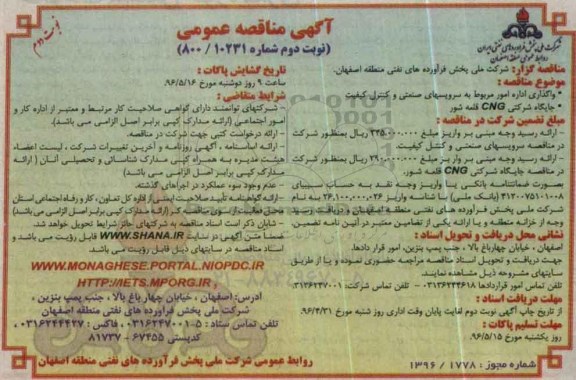 نوبت دوم
آگهی مناقصه عمومی
(نوبت دوم شماره ۱۰۲۳۱ / ۸۰۰)
شرکت ملی پخش فرآورده‌های نفتی ایران
روابط عمومی منطقه اصفهان
مناقصه گزار: شرکت ملی پخش فرآورده های نفتی منطقه اصفهان.
موضوع مناقصه :
• واگذاری اداره امور مربوط به سرویسهای صنعتی و کنترل کیفیت
• جایگاه شرکتی CNG قلعه شور
مبلغ تضمین شرکت در مناقصه :
- ارائه رسید وجه مبنی بر واریز مبلغ ۳۳۵,۰۰۰,۰۰۰ ریال بمنظور شرکت
در مناقصه سرویسهای صنعتی و کنترل کیفیت.
- ارائه رسید وجه مبنی بر واریز مبلغ ۲۹۰,۰۰۰,۰۰۰ ریال بمنظور شرکت
در مناقصه جایگاه شرکتی CNG قلعه شور.
بصورت ضمانتنامه بانکی یا واریز وجه نقد به حساب سیبای
۳۱۲۰۰۷۵۱۰۱۰۰۸ (بانک ملی) با شناسه واریز ۲۶,۱۰۰,۰۰۰,۰۲۶ به نام
شرکت ملی پخش فرآورده های نفتی منطقه اصفهان و دریافت رسید
وجه از خزانه منطقه و یا ارائه یکی از تضامین معتبر در آئین نامه تضمین
نشانی محل دریافت و تحویل اسناد :
اصفهان ، خیابان چهارباغ بالا ، جنب پمپ بنزین، امور قرار دادها.
جهت دریافت و تحویل اسناد مناقصه مراجعه حضوری نموده و یا از طریق
سایتهای مشروحه ذیل مشاهده نمایند.
تلفن تماس امور قراردادها ۰۳۱۳۶۲۴۴۶۱۸ – تلفنخانه شرکت: ۰۳۱۳۶۲۴۷۰۰۱
مهلت دریافت اسناد :
از تاریخ چاپ آگهی نوبت دوم لغایت پایان وقت اداری روز شنبه مورخ ۹۶/۴/۳۱
مهلت تسلیم پاکات :
روز یکشنبه مورخ ۹۶/۵/۱۵
شماره مجوز : ۱۷۷۸ / ۱۳۹۶
تاریخ گشایش پاکات :
ساعت ۹ روز دوشنبه مورخ ۹۶/۵/۱۶
شرایط متقاضی :
- شرکتهای توانمند دارای گواهی صلاحیت کار مرتبط و معتبر از اداره کار و
امور اجتماعی (ارائه مدارک کپی برابر اصل الزامی می باشد).
- ارائه درخواست کتبی جهت شرکت در مناقصه.
- ارائه اساسنامه ، آگهی روزنامه و آخرین تغییرات شرکت ، لیست اعضاء
هیئت مدیره به همراه کپی مدارک شناسائی و تحصیلی آنان ( ارائه
مدارک کپی برابر اصل الزامی می باشد)
- عدم وجود سوء عملکرد در اجراهای گذشته.
- ارائه گواهینامه تأیید صلاحیت ایمنی از اداره کل تعاون ، کار و رفاه اجتماعی استان
محل فعالیت از سوی مناقصه گر (ارائه مدارک کپی برابر اصل الزامی می باشد)
- شایان ذکر است اسناد مناقصه به شرکتهای حائز شرایط تحویل خواهد شد.
ضمناً متن آگهی در سایت WWW.SHANA.IR قابل رؤیت می باشد و
اسناد مناقصه در سایتهای ذیل قابل رؤیت می باشد.
WWW.MONAGHESE.PORTAL.NIOPDC.IR
HTTP://IETS.MPORG.IR ,
آدرس: اصفهان ، خیابان چهار باغ بالا ، جنب پمپ بنزین ،
شرکت ملی پخش فرآورده های نفتی منطقه اصفهان
تلفن تماس ستاد : ۵-۰۳۱۶۲۴۷۰۰۱، فاکس : ۰۳۱۶۲۴۴۴۲۷ ،
کدپستی ۶۷۴۵۵ - ۸۱۷۳۷
روابط عمومی شرکت ملی پخش فرآورده های نفتی منطقه اصفهان